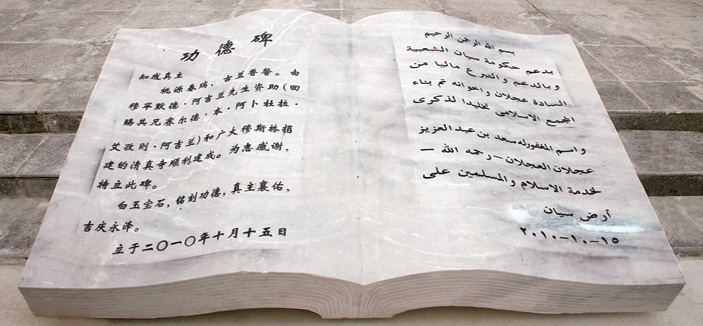 功德碑
知感真主
桃源春瑞，吉兰普馨。由
穆罕默德·阿吉兰先生资助(回
赐其兄赛尔德·本·阿卜杜拉·
艾孜则·阿吉兰)和广大穆斯林捐
建的清真寺顺利建成。为志感谢，
特立此碑。
白玉宝石，铭刻功德，真主襄佑，
吉庆永泽。
立于二〇一〇年十月十五日
بسم الله الرحمن الرحيم
بدعم حكومة سيان الشعبية
وبالدعم والتبرع ماليا من
السادة عجلان واخوانه تم بناء
المجمع الاسلامي تخليدا لذكرى
واسم المغفورله سعد بن عبد العزيز
عجلان العجلان – رحمه الله –
لخدمة الاسلام والمسلمين على
أرض سيان
٢٠١٠-١٠-١٥